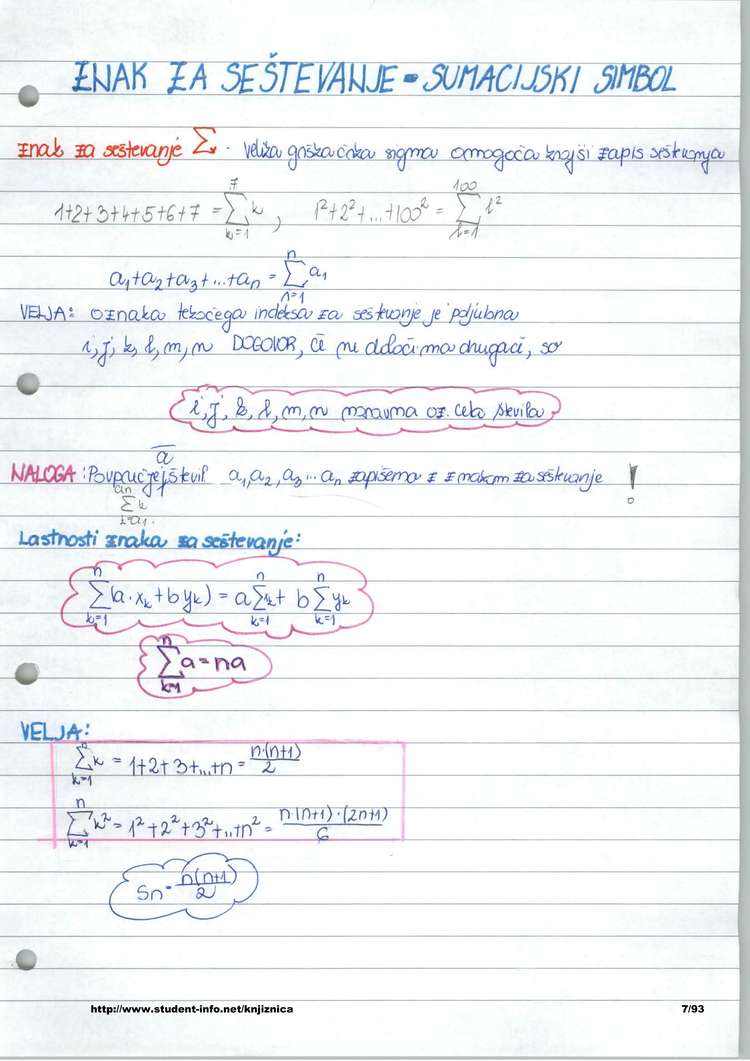 ZNAK ZA SEŠTEVANJE - SUMACIJSKI SIMBOL
znak za seštevanje Σ - velika grška črka sigma omogoča krajši zapis seštevanja
1+2+3+4+5+6+7 = \sum_{k=1}^{7} k , 1²+2²+...+100² = \sum_{l=1}^{100} l²
a₁+a₂+a₃+...+aₙ = \sum_{n=1}^{n} a₁
VELJA: oznaka tekočega indeksa za seštevanje je poljubna
i, j, k, l, m, n DOGOVOR, če ne določimo drugače, so
i, j, k, l, m, n naravna oz. cela števila
a̅
NALOGA: Povprečje števil a₁, a₂, a₃ ... aₙ zapišemo z znakom za seštevanje !
\sum_{k=a₁}^{aₙ} k
Lastnosti znaka za seštevanje:
\sum_{k=1}^{n} (a·xₖ+byₖ) = a \sum_{k=1}^{n} xₖ + b \sum_{k=1}^{n} yₖ
\sum_{k=1}^{n} a = na
VELJA:
\sum_{k=1}^{n} k = 1+2+3+...+n = \frac{n·(n+1)}{2}
\sum_{k=1}^{n} k² = 1²+2²+3²+...+n² = \frac{n·(n+1)·(2n+1)}{6}
Sn = \frac{n(n+1)}{2}
http://www.student-info.net/knjiznica 7/93